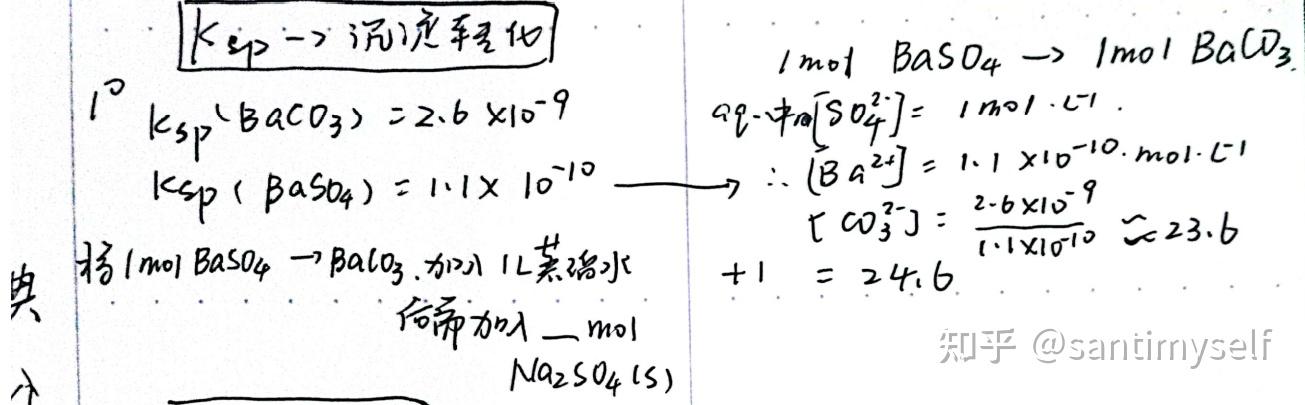 Ksp → 沉淀转化
1° Ksp(BaCO₃) = 2.6 × 10⁻⁹
Ksp(BaSO₄) = 1.1 × 10⁻¹⁰ →
将1mol BaSO₄ → BaCO₃.加入1L蒸馏水
后需加入__mol
Na₂SO₄(s)
1mol BaSO₄ → 1mol BaCO₃.
aq.中[SO₄²⁻] = 1mol·L⁻¹.
∴ [Ba²⁺] = 1.1 × 10⁻¹⁰·mol·L⁻¹
[CO₃²⁻] = 2.6×10⁻⁹/1.1×10⁻¹⁰ ≈ 23.6
+1 = 24.6
典
知乎 @santimyself